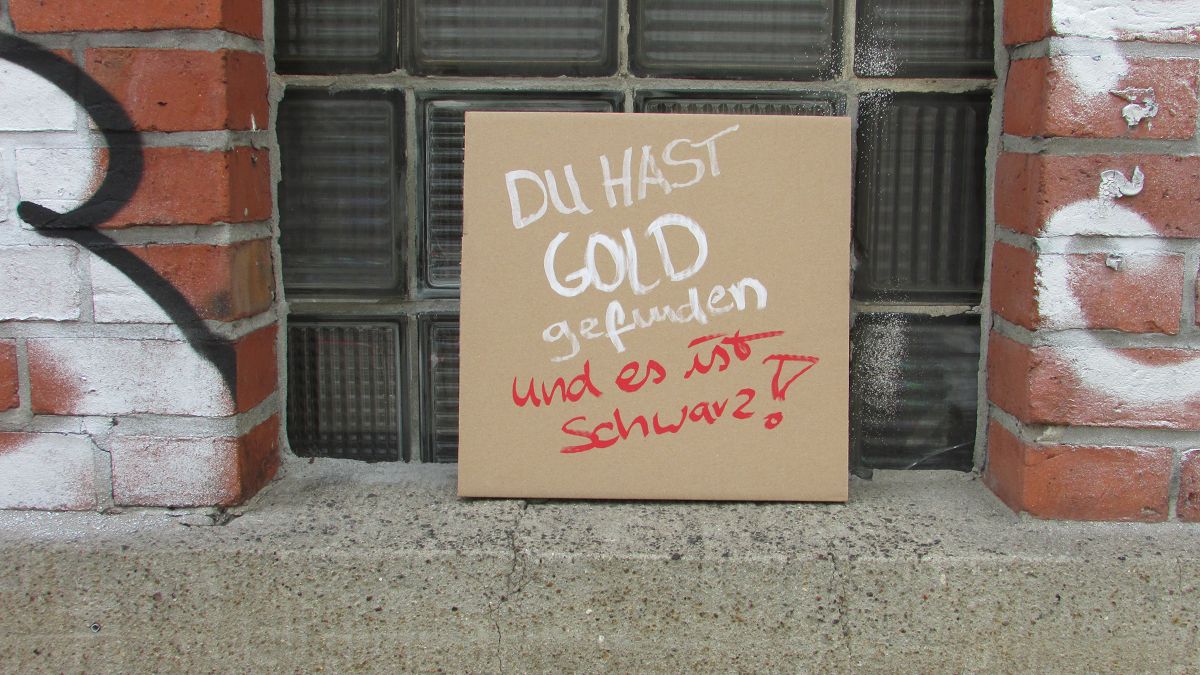 DU HAST
GOLD
gefunden
und es ist
schwarz!